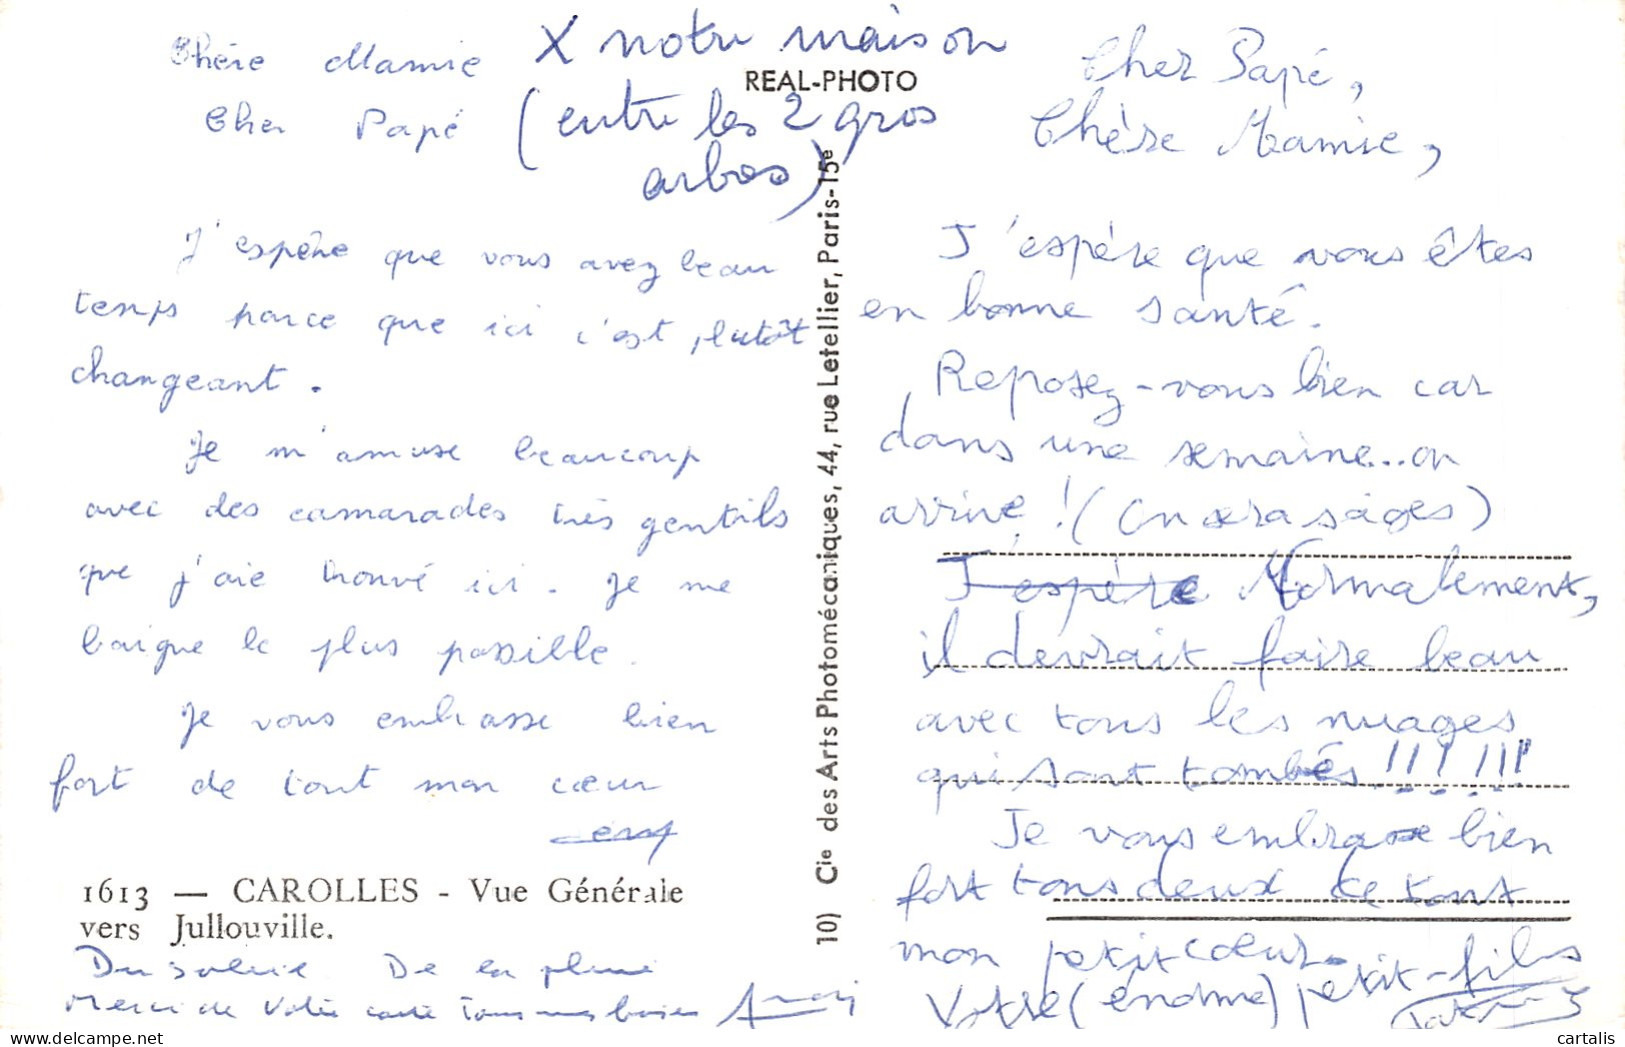 X notre maison
REAL-PHOTO
(entre les 2 gros
arbres)
Chère Mamie
Cher Papé
J'espère que vous avez beau
temps parce que ici c'est plutôt
changeant.
Je m'amuse beaucoup
avec des camarades très gentils
que j'aie trouvé ici. Je me
baigne le plus possible.
Je vous embrasse bien
fort de tout mon cœur
1613 — CAROLLES - Vue Générale
vers Jullouville.
Du soleil De la pluie
Merci de votre carte Tous nos baisers
10) Cie des Arts Photomécaniques, 44, rue Letellier, Paris-15e
Cher Papé,
Chère Mamie,
J'espère que vous êtes
en bonne santé.
Reposez-vous bien car
dans une semaine...on
arrive! (On sera sages)
J'espère Normalement,
il devrait faire beau
avec tous les nuages
qui sont tombés!!!!!!
Je vous embrasse bien
fort tous deux de tout
mon petit cœur.
Votre (énorme) petit-fils
cartalis.com